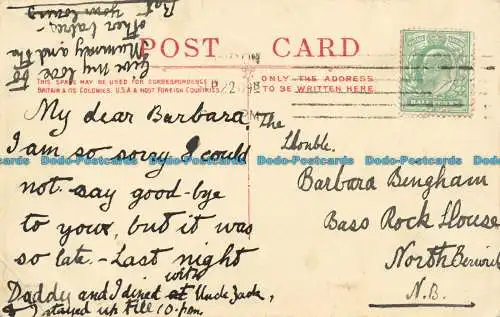 Give my love to
Mummy and the
other babies -
your loving
POST CARD
THIS SPACE MAY BE USED FOR CORRESPONDENCE
BRITAIN & ITS COLONIES, U.S.A & MOST FOREIGN COUNTRIES.
ONLY THE ADDRESS
TO BE WRITTEN HERE.
HALFPENNY
My dear Barbara,
I am so sorry I could
not say good-bye
to your, but it was
so late. - Last night
with
Daddy and I dined at Uncle Jack,
& I stayed up till 10.p.m.
The
Honble.
Barbara Bingham
Bass Rock House
North Berwick
N.B.
Duda-Postcards Duda-Postcards Duda-Postcards Duda-Postcards